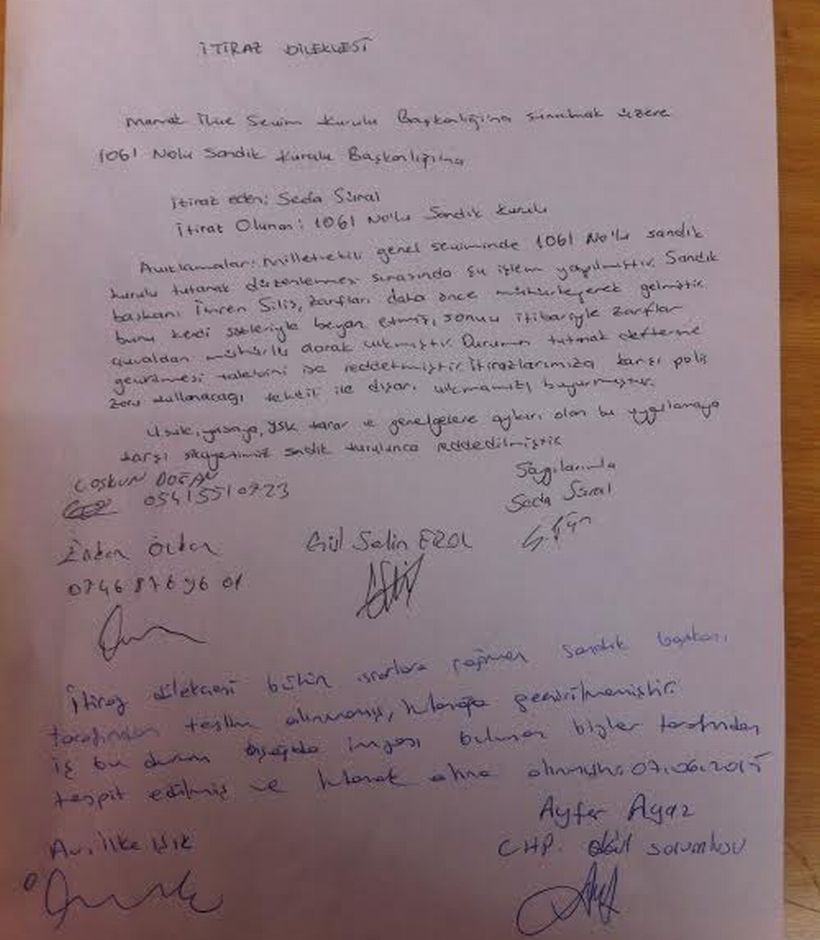 İTİRAZ DİLEKÇESİ
Mamak İlçe Seçim Kurulu Başkanlığına sunulmak üzere
1061 Nolu Sandık Kurulu Başkanlığına
İtiraz eden: Seda Süral
İtiraz Olunan: 1061 No'lu Sandık Kurulu
Açıklamalar: Milletvekili genel seçiminde 1061 No'lu sandık
kurulu tutanak düzenlenmesi sırasında şu işlem yapılmıştır. Sandık
başkanı İmren Siliş, zarfları daha önce mühürleyerek gelmiştir.
bunu kendi sözleriyle beyan etmiş, sonuç itibariyle zarflar
çuvaldan mühürlü olarak çıkmıştır. Durumun tutanak defterine
geçirilmesi talebini ise reddetmiştir. İtirazlarımıza karşı polis
zoru kullanacağı tehdit ile dışarı çıkmamızı buyurmuştur.
Usule, yasaya, YSK karar ve genelgelere aykırı olan bu uygulamaya
karşı şikayetimiz sandık kurulunca reddedilmiştir.
Saygılarımla
Seda Süral
COŞKUN DOĞAN
05415510723
Gül Selin EROL
İtiraz dilekçesi bütün ısrarlara rağmen sandık başkanı
tarafından teslim alınmamış, tutanağa geçirilmemiştir.
İş bu durum aşağıda imzası bulunan bizler tarafından
tespit edilmiş ve tutanak altına alınmıştır. 07.06.2015
Ayfer Ayaz
CHP. okul sorumlusu
Av. İlke Işık